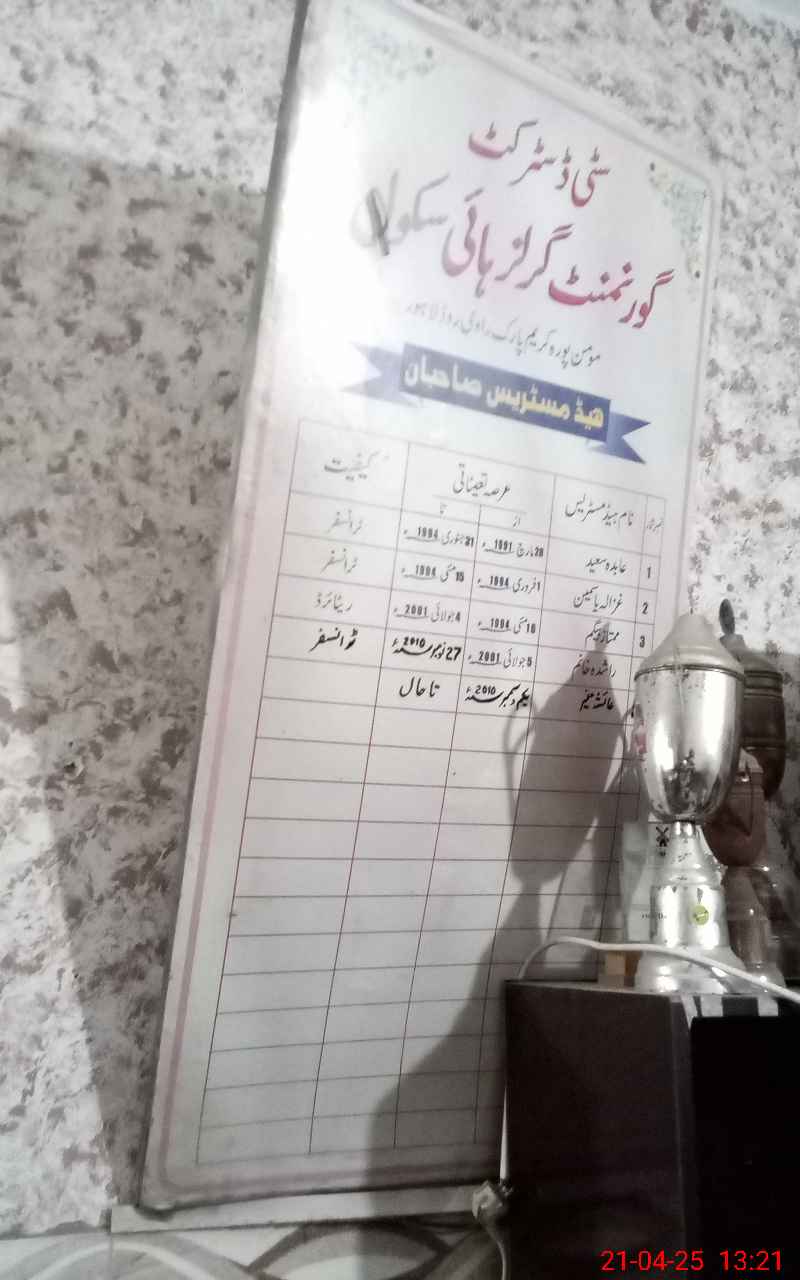 سٹی ڈسٹرکٹ
گورنمنٹ گرلز ہائی سکول
مومن پورہ کریم پارک راوی روڈ لاہور
ھیڈ مسٹریس صاحبان
نمبر شمار نام ہیڈ مسٹریس عرصہ تعیناتی کیفیت
از تا
1 عابدہ سعید 28 مارچ 1991ء 31 جنوری 1994ء ٹرانسفر
2 غزالہ یاسمین 1 فروری 1994ء 15 مئی 1994ء ٹرانسفر
3 ممتاز بیگم 16 مئی 1994ء 4 جولائی 2001ء ریٹائرڈ
راشدہ خانم 5 جولائی 2001ء 27 نومبر 2010ء ٹرانسفر
عائشہ منیر یکم دسمبر 2010ء تا حال
21-04-25 13:21